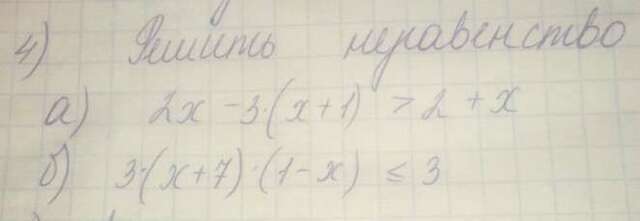 4) Решить неравенство
а) 2x - 3·(x+1) > 2 + x
б) 3·(x+7)·(1-x) ≤ 3